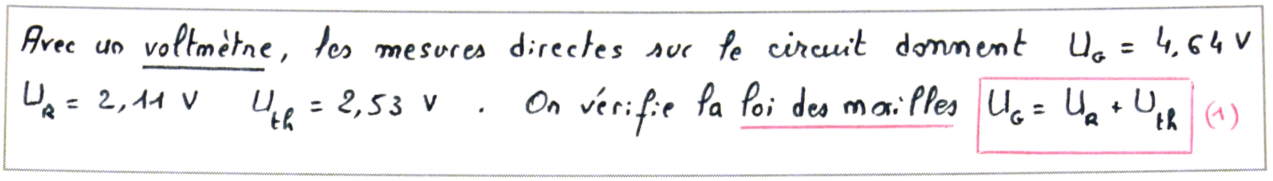 Avec un voltmètre, les mesures directes sur le circuit donnent U_G = 4,64 V
U_R = 2,11 V U_th = 2,53 V . On vérifie la loi des mailles U_G = U_R + U_th (1)